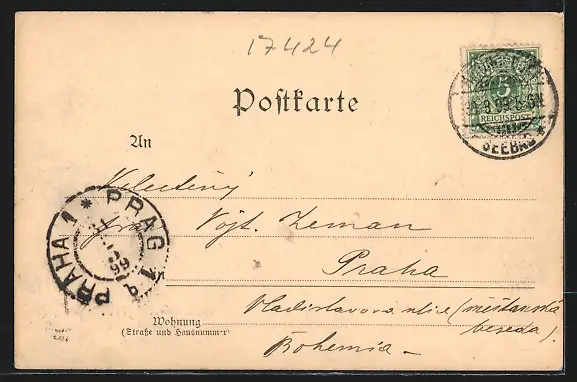 17424
Postkarte
5
REICHSPOST
SEEBAD *
An
Velectěný
Vojt. Zeman
Praha
PRAHA 1 * PRAG 1
Vladislavova ulice (měšťanská
beseda)
Wohnung
(Straße und Hausnummer)
Bohemia —